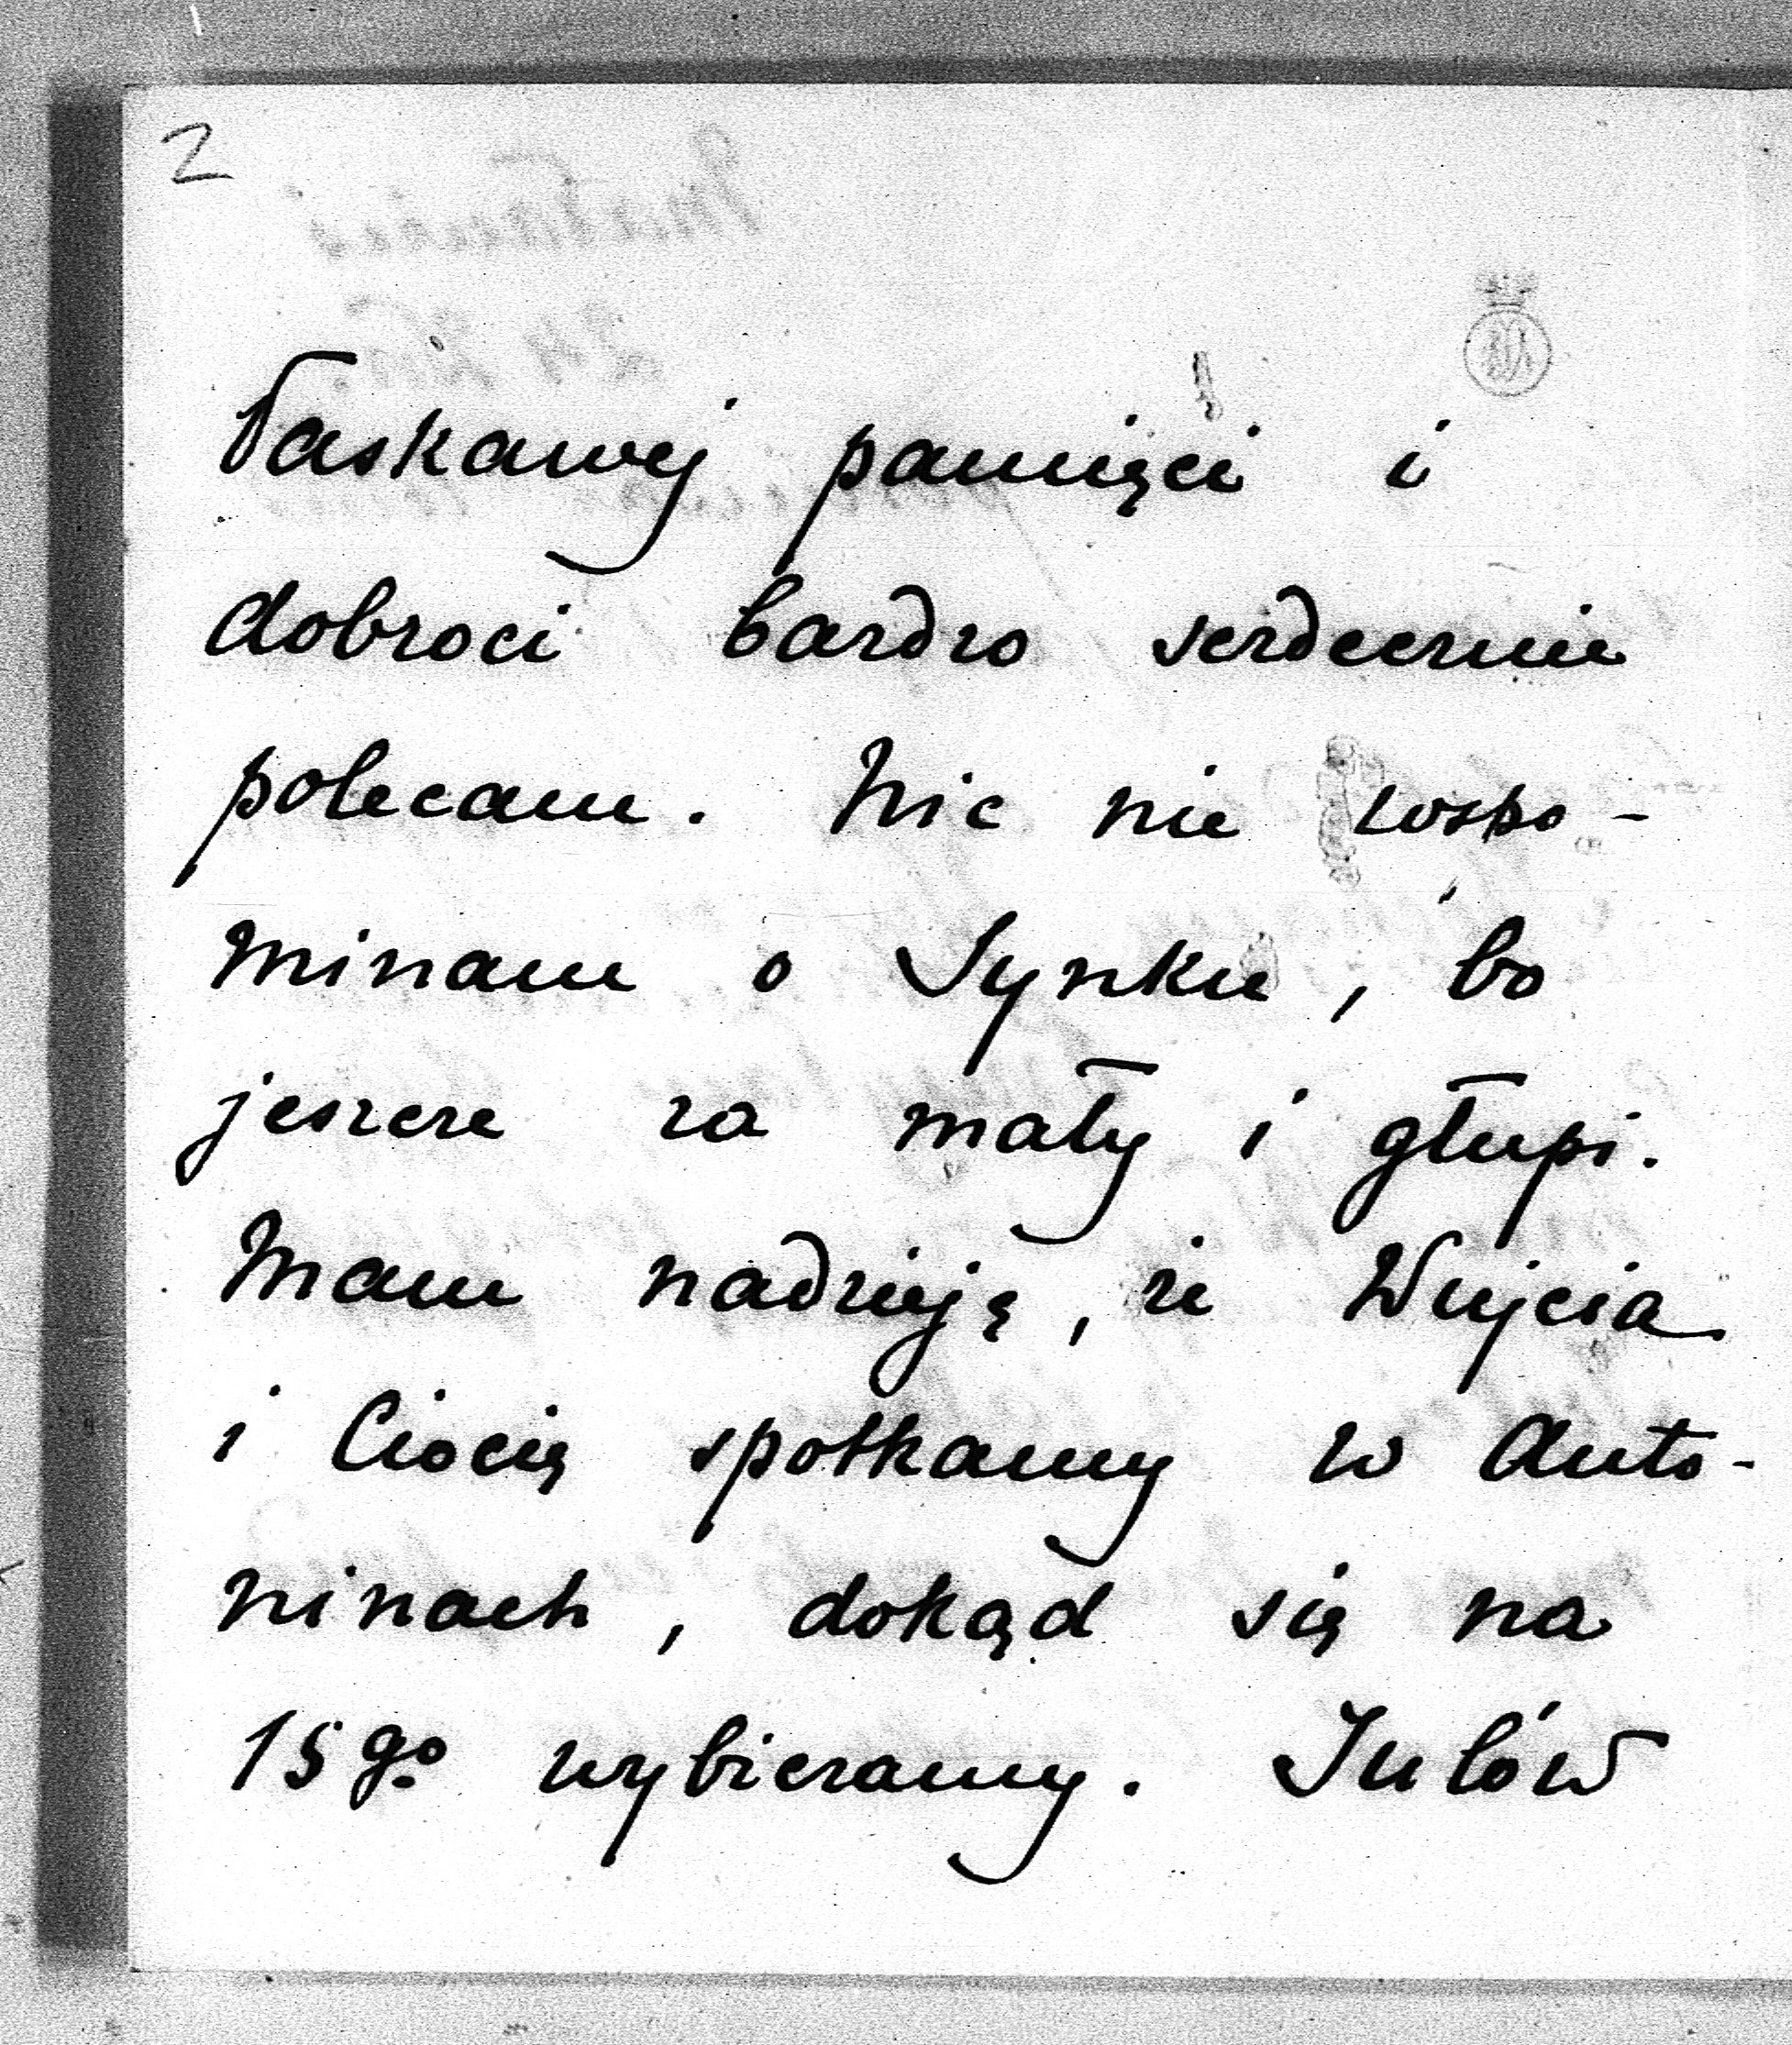 2
łaskawej pamięci i
dobroci bardzo serdecznie
polecam. Nic nie wspo-
minam o Synku, bo
jeszcze za mały i głupi.
Mam nadzieję, że Wujcia
i Ciocię spotkamy w Anto-
ninach, dokąd się na
15go wybieramy. Julów